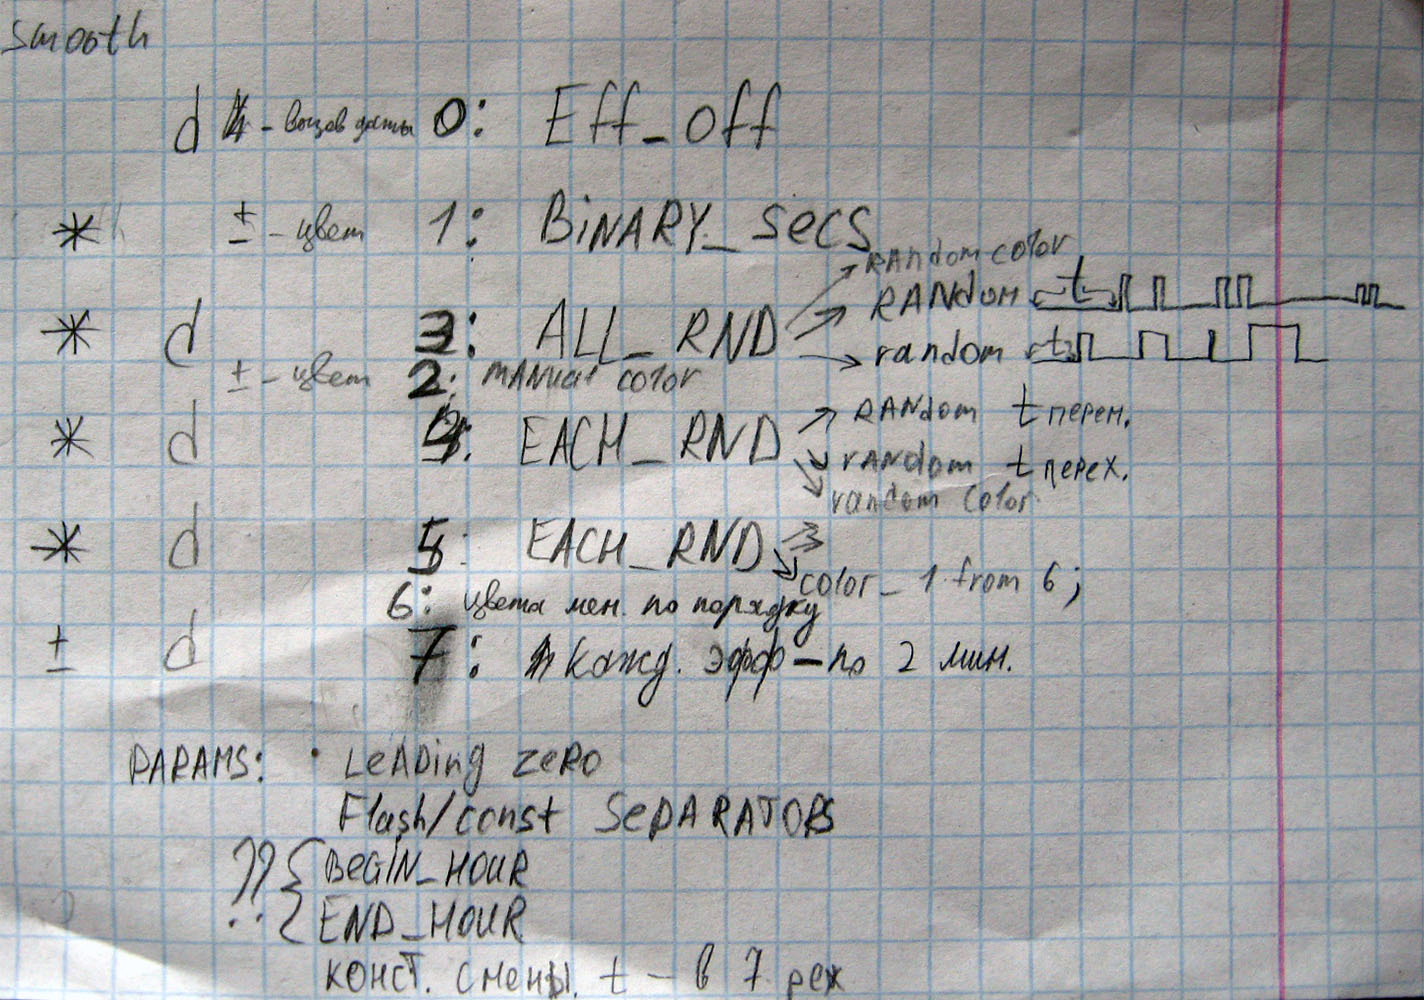 smooth
d - вызов даты 0: Eff_off
* ± - цвет 1: BiNARY_SecS
RANdom color
* d 3: ALL_RND RANdom t
random t
± - цвет 2: MANUAL color
RANdom t перем.
* d 4: EACH_RND rANdom t перех.
random color
* d 5: EACH_RND
color_1 from 6;
6: цвета мен. по порядку
± d 7: Кажд. эфф – по 2 мин.
PARAMS: • LeADing zeRO
Flash/const SePARATORS
?? { BEGIN_HOUR
END_HOUR
КОНСТ. СМЕНЫ. t – в 7 реж